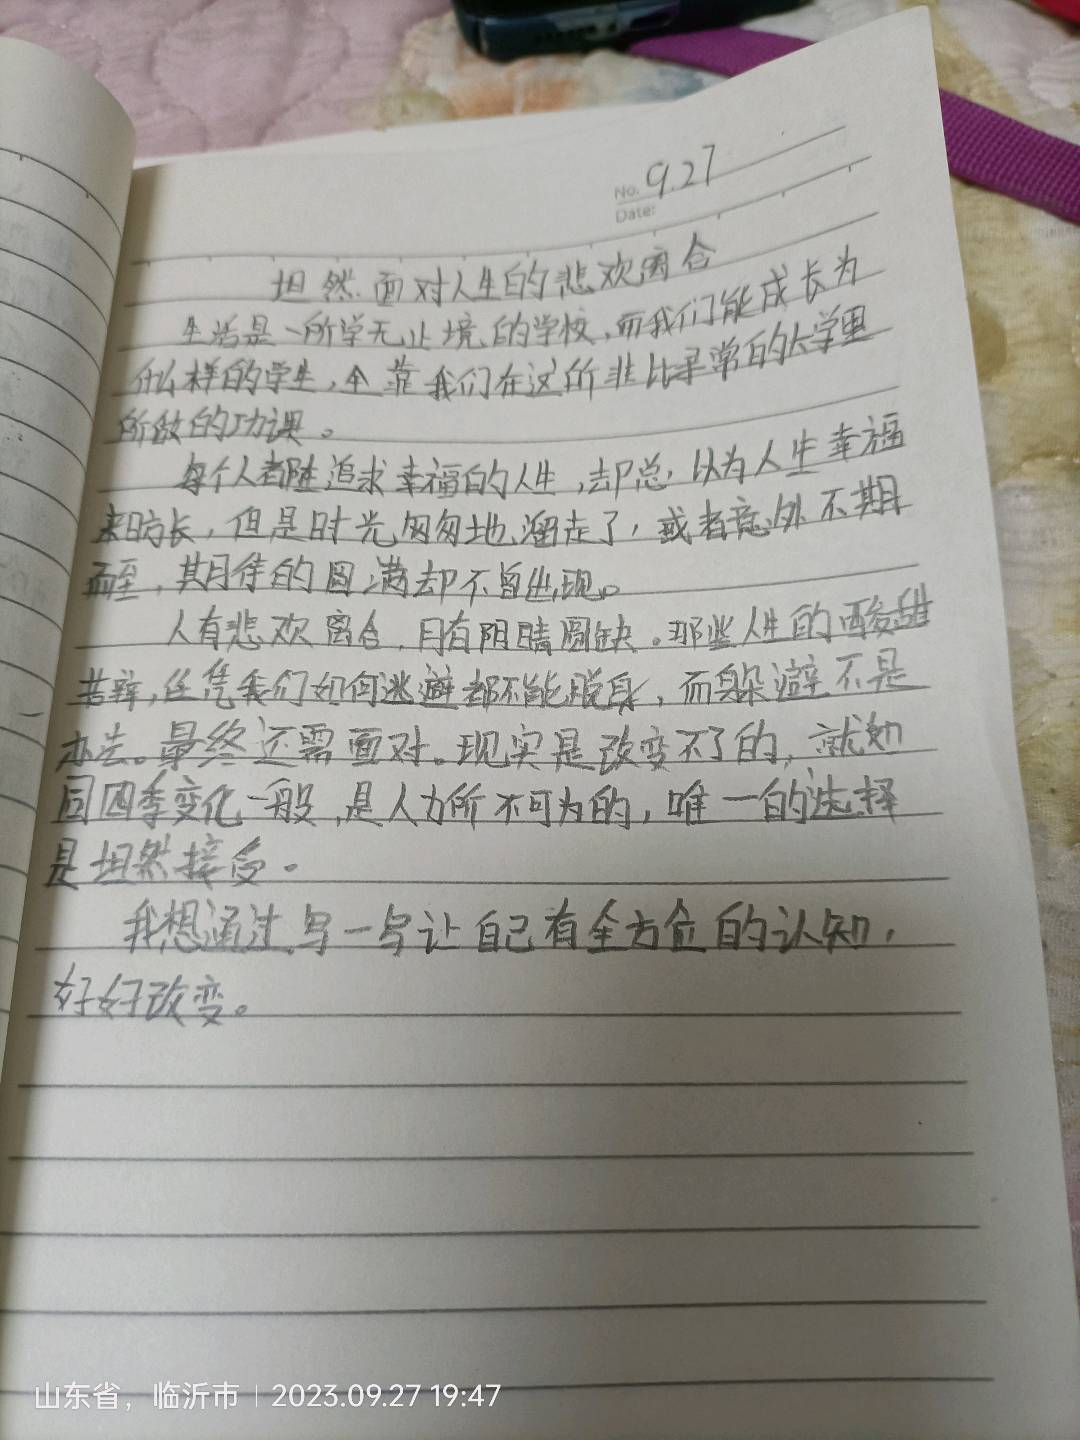 No. 9.27
Date:
坦然面对人生的悲欢离合
生活是一所学无止境的学校，而我们能成长为
什么样的学生，全靠我们在这所非比寻常的大学里
所做的功课。
每个人都在追求幸福的人生，却总以为人生幸福
来日方长，但是时光匆匆地溜走了，或者意外不期
而至，期待的圆满却不曾出现。
人有悲欢离合，月有阴晴圆缺。那些人生的酸甜
苦辣，任凭我们如何逃避都不能脱身，而躲避不是
办法。最终还需面对。现实是改变不了的，就如
同四季变化一般，是人力所不可为的，唯一的选择
是坦然接受。
我想通过写一写让自己有全方位的认知，
好好改变。
山东省，临沂市 | 2023.09.27 19:47